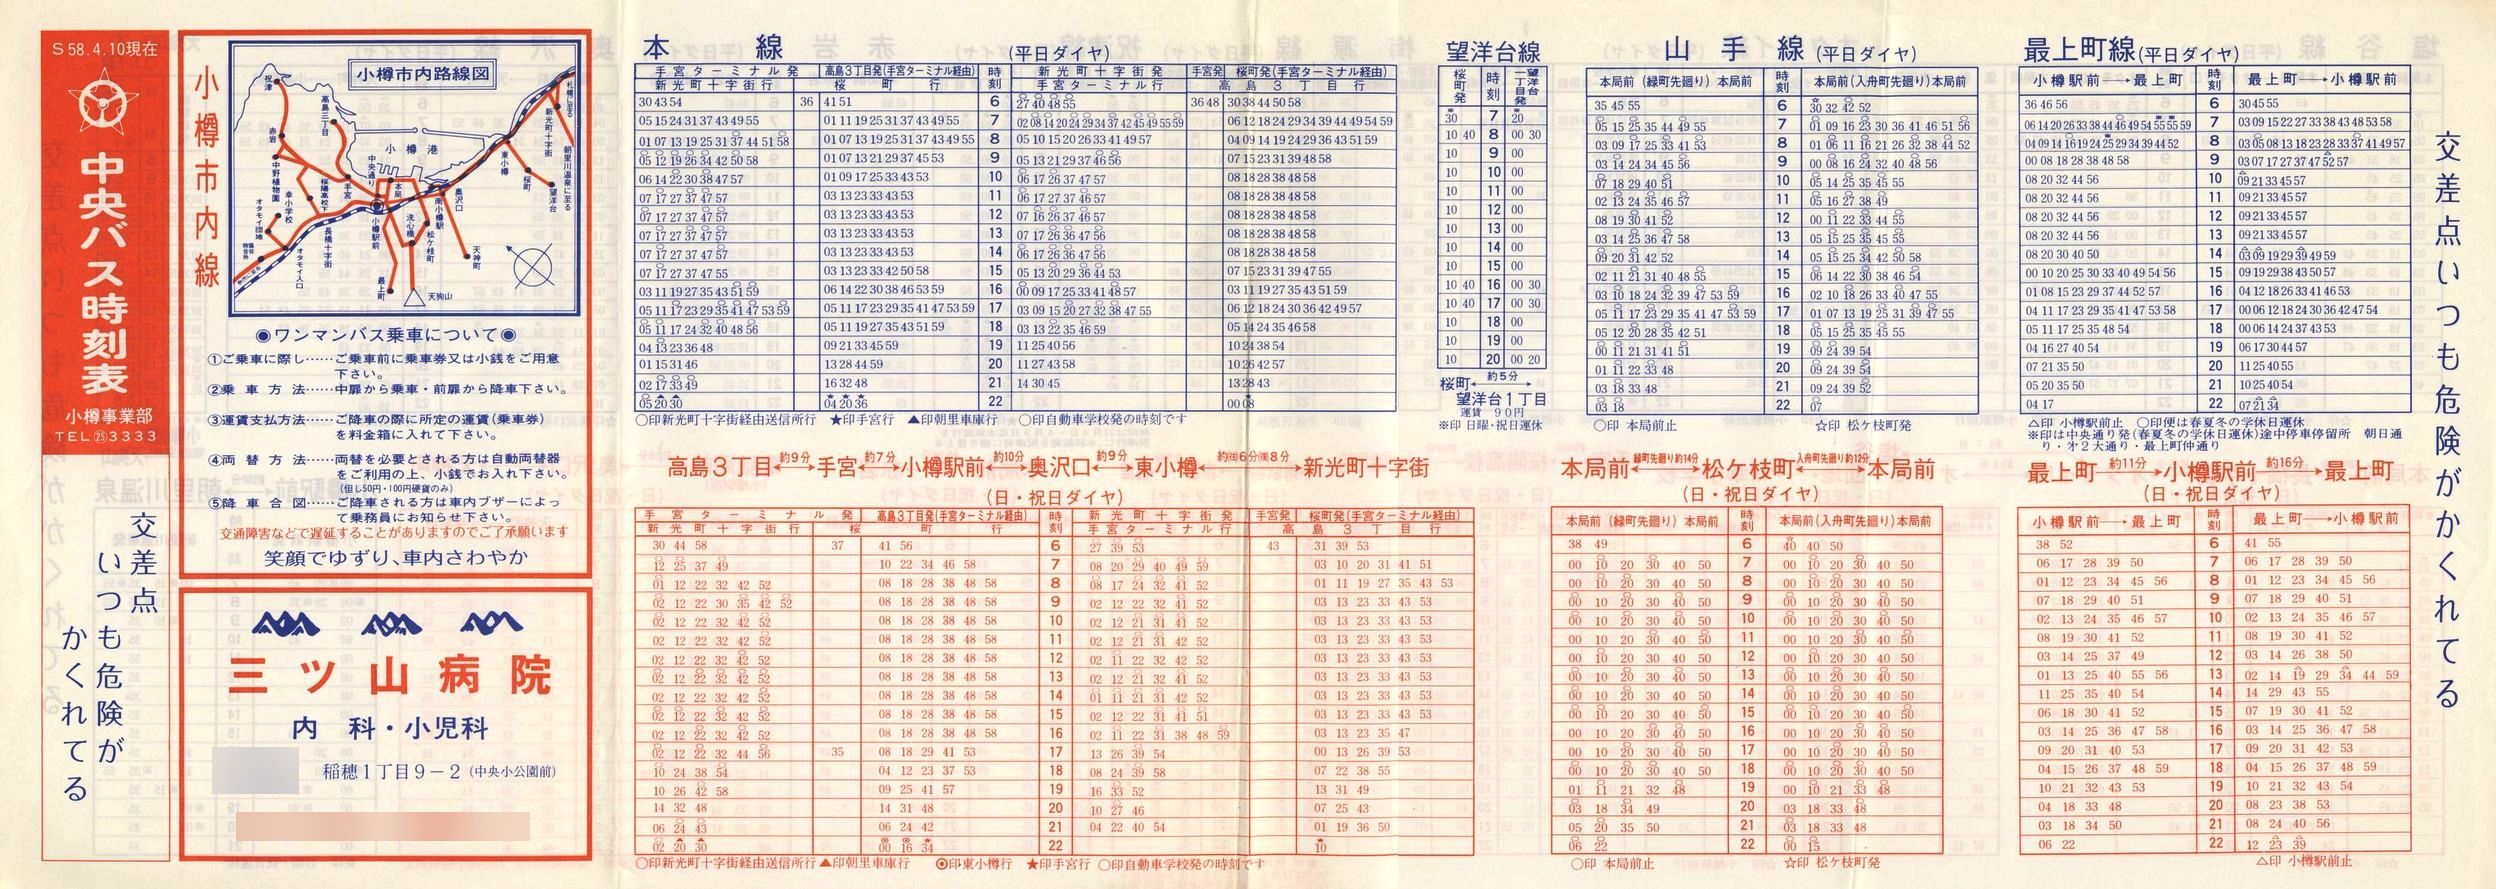 S58.4.10現在
中央バス時刻表
小樽事業部
TEL㉕3333
交差点
いつも危険が
かくれてる
小樽市内線
小樽市内路線図
祝津
高島三丁目
赤岩
小樽港
中央通り
手宮
本局
中野植物園
桜陽高校下
幸小学校
オタモイ団地
長橋十字街
オタモイ入口
小樽駅前
洗心橋
南小樽駅
奥沢口
松ケ枝町
最上町
天狗山
天神町
東小樽
桜町
望洋台
新光町十字街
札幌に至る
朝里川温泉に至る
◉ワンマンバス乗車について◉
①ご乗車に際し……ご乗車前に乗車券又は小銭をご用意
下さい。
②乗車方法……中扉から乗車・前扉から降車下さい。
③運賃支払方法……ご降車の際に所定の運賃(乗車券)
を料金箱に入れて下さい。
④両替方法……両替を必要とされる方は自動両替器
をご利用の上、小銭でお入れ下さい。
(但し50円・100円硬貨のみ)
⑤降車合図……ご降車される方は車内ブザーによっ
て乗務員にお知らせ下さい。
交通障害などで遅延することがありますのでご了承願います
笑顔でゆずり、車内さわやか
三ツ山病院
内科・小児科
稲穂1丁目9−2(中央小公園前)
本線(平日ダイヤ)
手宮ターミナル発 高島3丁目発(手宮ターミナル経由) 時刻 新光町十字街発 手宮発 桜町発(手宮ターミナル経由)
新光町十字街行 桜町行 手宮ターミナル行 高島3丁目行
30 43 54 36 41 51 6 27 40 48 55 36 48 30 38 44 50 58
05 15 24 31 37 43 49 55 01 11 19 25 31 37 43 49 55 7 02 08 14 20 24 29 34 37 42 45 49 55 59 06 12 18 24 29 34 39 44 49 54 59
01 07 13 19 25 31 37 44 51 58 01 07 13 19 25 31 37 43 49 55 8 05 10 15 20 26 33 41 49 57 04 09 14 19 24 29 36 43 51 59
05 12 19 26 34 42 50 58 01 07 13 21 29 37 45 53 9 05 13 21 29 37 46 56 07 15 23 31 39 48 58
06 14 22 30 38 47 57 01 09 17 25 33 43 53 10 06 17 26 37 47 57 08 18 28 38 48 58
07 17 27 37 47 57 03 13 23 33 43 53 11 06 17 27 37 46 57 08 18 28 38 48 58
07 17 27 37 47 57 03 13 23 33 43 53 12 07 16 26 37 46 57 08 18 28 38 48 58
07 17 27 37 47 57 03 13 23 33 43 53 13 07 17 26 36 47 56 08 18 28 38 48 58
07 17 27 37 47 57 03 13 23 33 43 53 14 06 17 26 36 47 56 08 18 28 38 48 58
07 17 27 37 47 55 03 13 23 33 42 50 58 15 05 13 20 29 36 44 53 07 15 23 31 39 47 55
03 11 19 27 35 43 51 59 06 14 22 30 38 46 53 59 16 00 09 17 25 33 41 48 57 03 11 19 27 35 43 51 59
05 11 17 23 29 35 41 47 53 59 05 11 17 23 29 35 41 47 53 59 17 03 09 15 20 27 32 38 47 55 06 12 18 24 30 36 42 49 57
05 11 17 24 32 40 48 56 05 11 19 27 35 43 51 59 18 03 13 22 35 46 59 05 14 24 35 46 58
04 13 23 36 48 09 21 33 45 59 19 11 25 40 56 10 24 38 54
01 15 31 46 13 28 44 59 20 11 27 43 58 10 26 42 57
02 17 33 49 16 32 48 21 14 30 45 13 28 43
05 20 30 04 20 36 22 00 08
〇印新光町十字街経由送信所行 ★印手宮行 ▲印朝里車庫行 〇印自動車学校発の時刻です
高島3丁目 約9分 手宮 約7分 小樽駅前 約10分 奥沢口 約9分 東小樽 新光町十字街
(日・祝日ダイヤ)
手宮ターミナル発 高島3丁目発(手宮ターミナル経由) 時刻 新光町十字街発 手宮発 桜町発(手宮ターミナル経由)
新光町十字街行 桜町行 手宮ターミナル行 高島3丁目行
30 44 58 37 41 56 6 27 39 53 43 31 39 53
12 25 37 49 10 22 34 46 58 7 08 20 29 40 49 59 03 10 20 31 41 51
01 12 22 32 42 52 08 18 28 38 48 58 8 08 17 24 32 41 52 01 11 19 27 35 43 53
02 12 22 30 35 42 52 08 18 28 38 48 58 9 02 12 22 32 41 52 03 13 23 33 43 53
02 12 22 32 42 52 08 18 28 38 48 58 10 02 12 21 31 41 52 03 13 23 33 43 53
02 12 22 32 42 52 08 18 28 38 48 58 11 02 12 21 31 42 52 03 13 23 33 43 53
02 12 22 32 42 52 08 18 28 38 48 58 12 02 11 22 32 42 52 03 13 23 33 43 53
02 12 22 32 42 52 08 18 28 38 48 58 13 02 12 21 32 41 52 03 13 23 33 43 53
02 12 22 32 42 52 08 18 28 38 48 58 14 01 11 21 31 42 52 03 13 23 33 43 53
02 12 22 32 42 52 08 18 28 38 48 58 15 02 12 22 31 41 51 03 13 23 33 43 53
02 12 22 32 42 52 08 18 28 38 48 58 16 02 11 22 31 38 48 59 03 13 23 35 47
02 12 22 32 44 56 35 08 18 29 41 53 17 13 26 39 54 00 13 26 39 53
10 24 38 54 04 12 23 37 53 18 08 24 39 58 07 22 38 55
10 26 42 58 09 25 41 57 19 16 33 52 13 31 49
14 32 48 14 31 48 20 10 27 46 07 25 43
06 24 43 06 24 42 21 04 22 40 54 01 19 36 50
02 20 30 00 16 34 22 10
〇印新光町十字街経由送信所行 ▲印朝里車庫行 ◉印東小樽行 ★印手宮行 〇印自動車学校発の時刻です
望洋台線
桜町発 時刻 望洋台一丁目発
30 7 20
10 40 8 00 30
10 9 00
10 10 00
10 11 00
10 12 00
10 13 00
10 14 00
10 15 00
10 40 16 00 30
10 40 17 00 30
10 18 00
10 19 00
10 20 00 20
約5分
桜町 望洋台1丁目
運賃 90円
※印 日曜・祝日運休
山手線(平日ダイヤ)
本局前(緑町先廻り)本局前 時刻 本局前(入舟町先廻り)本局前
35 45 55 6 30 32 42 52
05 15 25 35 44 49 55 7 01 09 16 23 30 36 41 46 51 56
03 09 17 25 33 41 53 8 01 06 11 16 21 26 32 38 44 52
03 14 24 34 45 56 9 00 08 16 24 32 40 48 56
07 18 29 40 51 10 05 14 25 35 45 55
02 13 24 35 46 57 11 05 16 27 38 49
08 19 30 41 52 12 00 11 22 33 44 55
03 14 25 36 47 58 13 05 15 25 35 45 55
09 20 31 42 52 14 05 15 25 34 42 50 58
02 11 21 31 40 48 55 15 06 14 22 30 38 46 54
03 10 18 24 32 39 47 53 59 16 02 10 18 26 33 40 47 55
05 11 17 23 29 35 41 47 53 59 17 01 07 13 19 25 31 39 47 55
05 12 20 28 35 42 51 18 05 15 25 35 45 55
00 11 21 31 41 51 19 09 24 39 54
01 11 22 33 48 20 09 24 39 54
03 18 33 48 21 09 24 39 52
03 18 22 07
〇印 本局前止 ☆印 松ケ枝町発
本局前 緑町先廻り約14分 松ケ枝町 入舟町先廻り約12分 本局前
(日・祝日ダイヤ)
本局前(緑町先廻り)本局前 時刻 本局前(入舟町先廻り)本局前
38 49 6 40 40 50
00 10 20 30 40 50 7 00 10 20 30 40 50
00 10 20 30 40 50 8 00 10 20 30 40 50
00 10 20 30 40 50 9 00 10 20 30 40 50
00 10 20 30 40 50 10 00 10 20 30 40 50
00 10 20 30 40 50 11 00 10 20 30 40 50
00 10 20 30 40 50 12 00 10 20 30 40 50
00 10 20 30 40 50 13 00 10 20 30 40 50
00 10 20 30 40 50 14 00 10 20 30 40 50
00 10 20 30 40 50 15 00 10 20 30 40 50
00 10 20 30 40 50 16 00 10 20 30 40 50
00 10 20 30 40 50 17 00 10 20 30 40 50
00 10 20 30 40 50 18 00 10 20 30 40 50
01 11 21 32 48 19 00 10 21 33 48
03 18 34 49 20 03 18 33 48
05 20 35 50 21 03 18 33 48
06 22 22 00 15
〇印 本局前止 ☆印 松ケ枝町発
最上町線(平日ダイヤ)
小樽駅前→最上町 時刻 最上町→小樽駅前
36 46 56 6 30 45 55
06 14 20 26 33 38 44 46 49 54 55 55 59 7 03 09 15 22 27 33 38 43 48 53 58
04 09 14 16 19 24 25 29 34 39 44 52 8 03 05 08 13 18 23 28 33 37 41 49 57
00 08 18 28 38 48 58 9 03 07 17 27 37 47 52 57
08 20 32 44 56 10 09 21 33 45 57
08 20 32 44 56 11 09 21 33 45 57
08 20 32 44 56 12 09 21 33 45 57
08 20 32 44 56 13 09 21 33 45 57
08 20 30 40 50 14 03 09 19 29 39 49 59
00 10 20 25 30 33 40 49 54 56 15 09 19 29 38 43 50 57
01 08 15 23 30 37 44 52 57 16 04 12 18 26 33 41 46 53
04 11 17 23 29 35 41 47 53 58 17 00 06 12 18 24 30 36 42 47 54
05 11 17 25 35 48 54 18 00 06 14 24 37 43 53
04 16 27 40 54 19 06 17 30 44 57
07 21 35 50 20 11 25 40 55
05 20 35 50 21 10 25 40 54
04 17 22 07 21 34
△印 小樽駅前止 〇印便は春夏冬の学休日運休
※印は中央通り発(春夏冬の学休日運休)途中停車停留所 朝日通
り・オ2大通り・最上町仲通り
最上町 約11分 小樽駅前 約16分 最上町
(日・祝日ダイヤ)
小樽駅前→最上町 時刻 最上町→小樽駅前
38 52 6 41 55
06 17 28 39 50 7 06 17 28 39 50
01 12 23 34 45 56 8 01 12 23 34 45 56
07 18 29 40 51 9 07 18 29 40 51
02 13 24 35 46 57 10 02 13 24 35 46 57
08 19 30 41 52 11 08 19 30 41 52
03 14 25 37 49 12 03 14 26 38 50
01 13 25 40 55 56 13 02 14 19 29 34 44 59
11 25 35 40 54 14 14 29 43 55
06 18 30 41 52 15 07 19 30 41 52
03 14 25 36 47 58 16 03 14 25 36 47 58
09 20 31 40 53 17 09 20 31 42 53
04 15 26 37 48 59 18 04 15 26 37 48 59
10 21 32 43 53 19 10 21 32 43 54
04 18 33 48 20 08 23 38 53
03 18 34 50 21 08 24 40 56
06 22 22 12 23 39
△印 小樽駅前止
交差点いつも危険がかくれてる